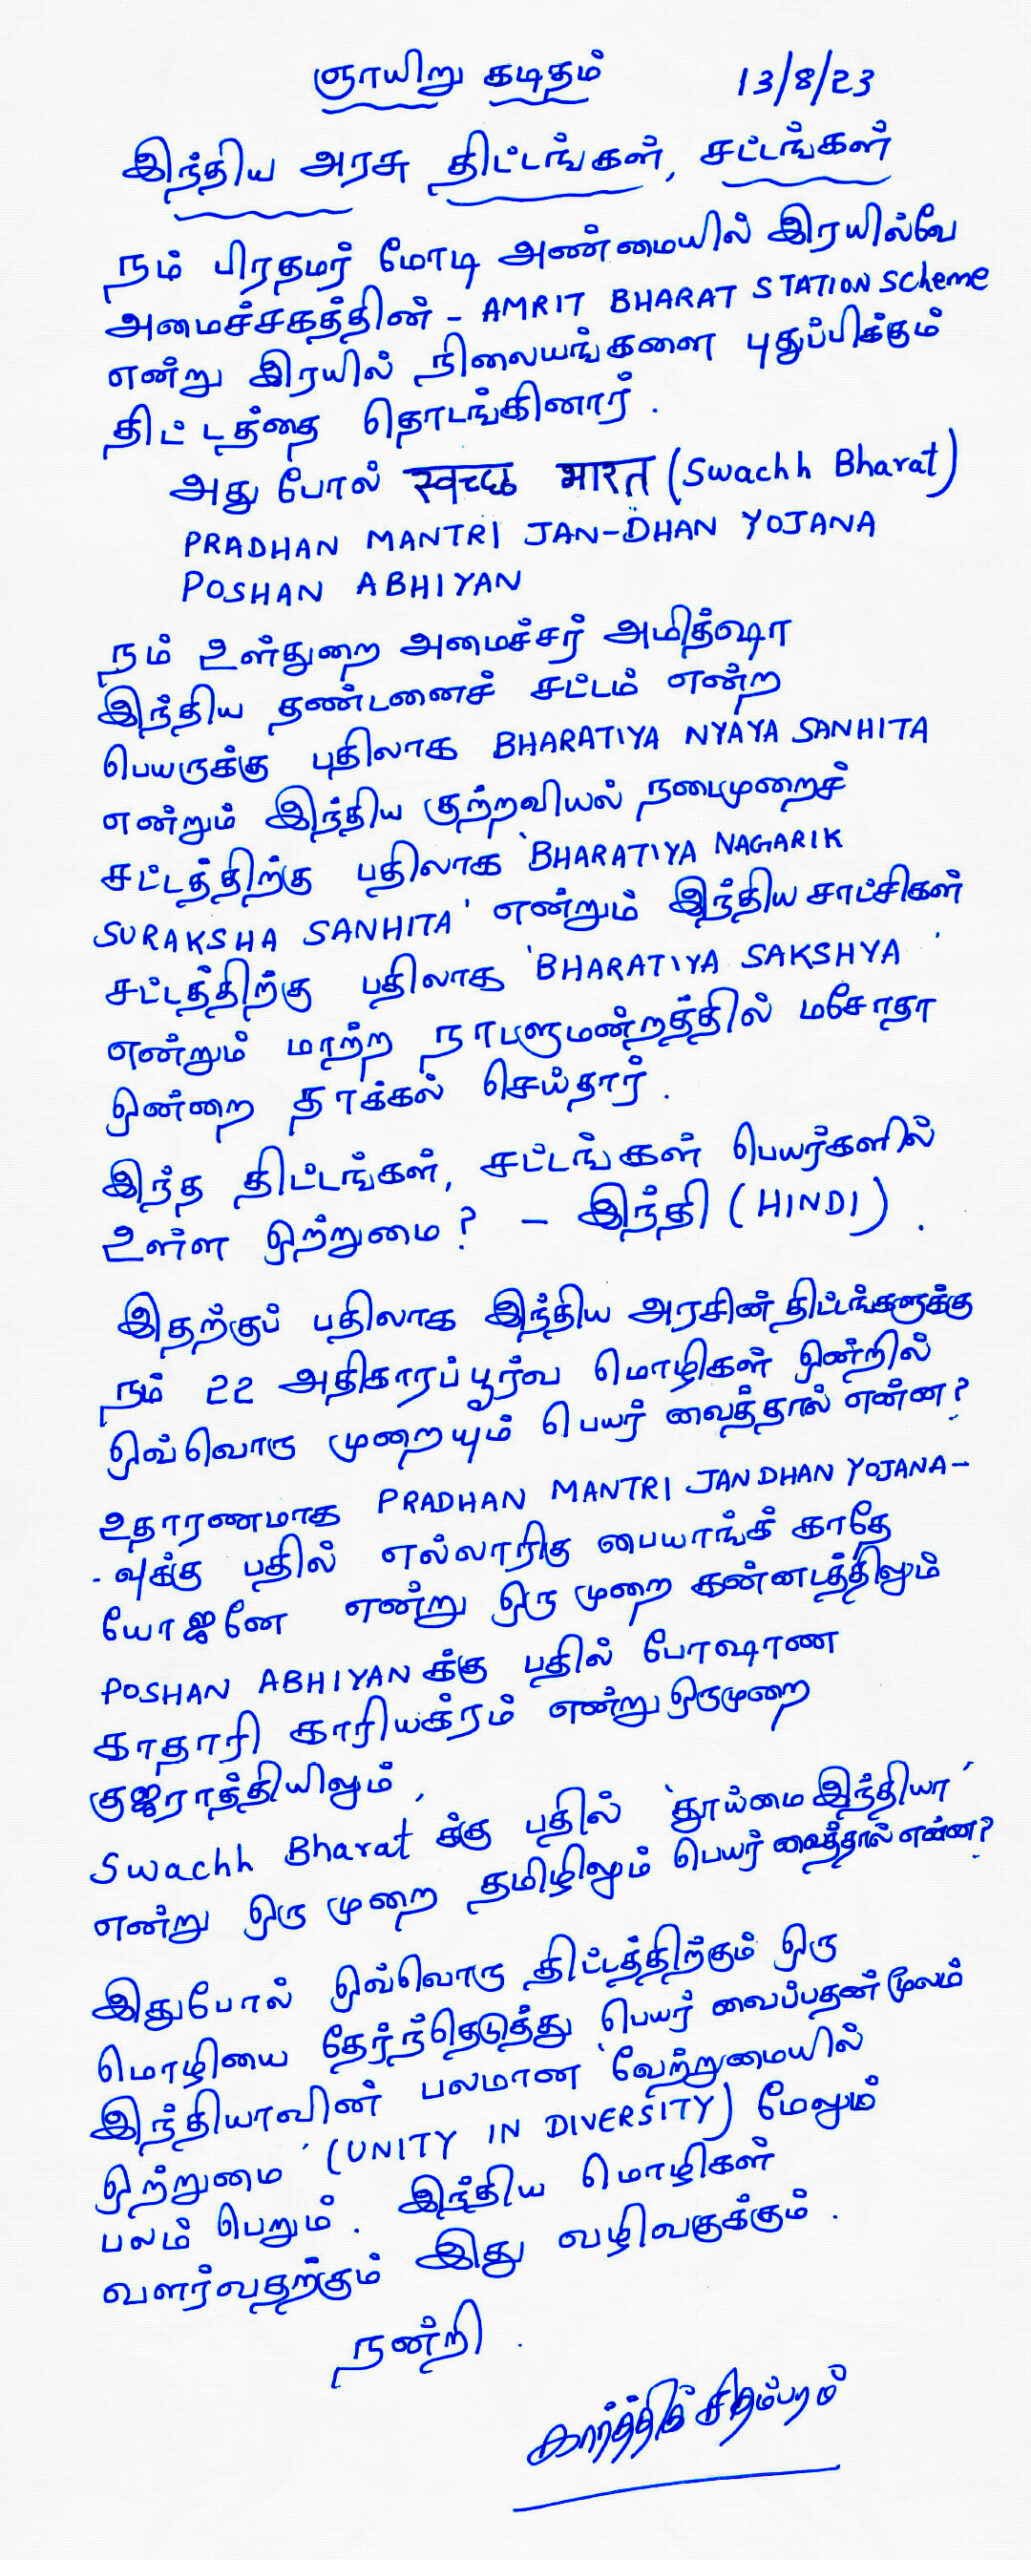 ஞாயிறு கடிதம் 13/8/23
இந்திய அரசு திட்டங்கள், சட்டங்கள்
நம் பிரதமர் மோடி அண்மையில் இரயில்வே
அமைச்சகத்தின் - AMRIT BHARAT STATION Scheme
என்று இரயில் நிலையங்களை புதுப்பிக்கும்
திட்டத்தை தொடங்கினார்.
அது போல் स्वच्छ भारत (Swachh Bharat)
PRADHAN MANTRI JAN-DHAN YOJANA
POSHAN ABHIYAN
நம் உள்துறை அமைச்சர் அமித்ஷா
இந்திய தண்டனைச் சட்டம் என்ற
பெயருக்கு புதிலாக BHARATIYA NYAYA SANHITA
என்றும் இந்திய குற்றவியல் நடைமுறைச்
சட்டத்திற்கு பதிலாக 'BHARATIYA NAGARIK
SURAKSHA SANHITA' என்றும் இந்திய சாட்சிகள்
சட்டத்திற்கு பதிலாக 'BHARATIYA SAKSHYA'
என்றும் மாற்ற நாடாளுமன்றத்தில் மசோதா
ஒன்றை தாக்கல் செய்தார்.
இந்த திட்டங்கள், சட்டங்கள் பெயர்களில்
உள்ள ஒற்றுமை? - இந்தி (HINDI).
இதற்குப் பதிலாக இந்திய அரசின் திட்டங்களுக்கு
நம் 22 அதிகாரப்பூர்வ மொழிகள் ஒன்றில்
ஒவ்வொரு முறையும் பெயர் வைத்தால் என்ன?
உதாரணமாக PRADHAN MANTRI JAN DHAN YOJANA-
-வுக்கு பதில் எல்லாரிகு பையாங்க் காதே
யோஜனே என்று ஒரு முறை கன்னடத்திலும்
POSHAN ABHIYAN க்கு பதில் போஷாண
காதாரி காரியக்ரம் என்று ஒருமுறை
குஜராத்தியிலும்,
Swachh Bharat க்கு பதில் 'தூய்மை இந்தியா'
என்று ஒரு முறை தமிழிலும் பெயர் வைத்தால் என்ன?
இதுபோல் ஒவ்வொரு திட்டத்திற்கும் ஒரு
மொழியை தேர்ந்தெடுத்து பெயர் வைப்பதன் மூலம்
இந்தியாவின் பலமான 'வேற்றுமையில்
ஒற்றுமை' (UNITY IN DIVERSITY) மேலும்
பலம் பெறும். இந்திய மொழிகள்
வளர்வதற்கும் இது வழிவகுக்கும்.
நன்றி.
கார்த்திக் சிதம்பரம்